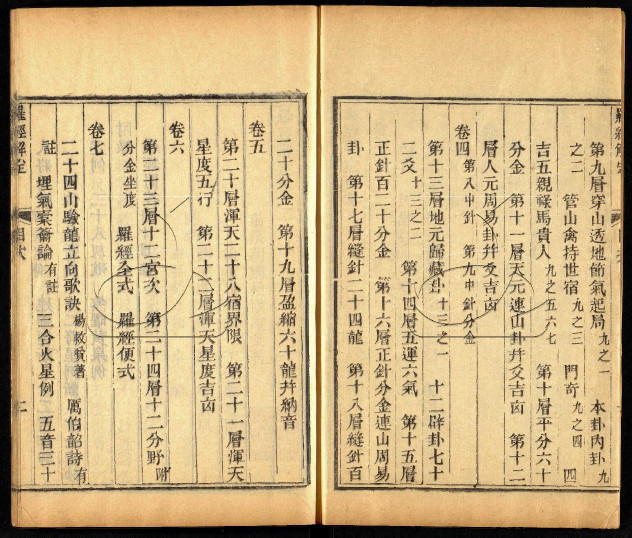 第九層穿山透地節氣起局九之一　本卦內卦九
之二　管山禽持世宿九之三　門奇九之四　四
吉五親祿馬貴人九之五六七　第十層平分六十
分金　第十一層天元連山卦并爻吉凶　第十二
層人元周易卦并爻吉凶
卷四　第八中針　第九中針分金
第十三層地元歸藏卦十三之一　十二辟卦七十
二爻十三之二　第十四層五運六氣　第十五層
正針百二十分金　第十六層正針分金連山周易
卦　第十七層縫針二十四龍　第十八層縫針百
二十分金　第十九層盈縮六十龍并納音
卷五
第二十層渾天二十八宿界限　第二十一層渾天
星度五行　第二十二層渾天星度吉凶
卷六
第二十三層十二宮次　第二十四層十二分野附
分金坐度　羅經全式　羅經便式
卷七
二十四山驗龍立向歌訣楊救貧著　厲伯韶詩有
註　埋氣索籥論有註　三合火星例　五音三十
羅經解定　目次　二